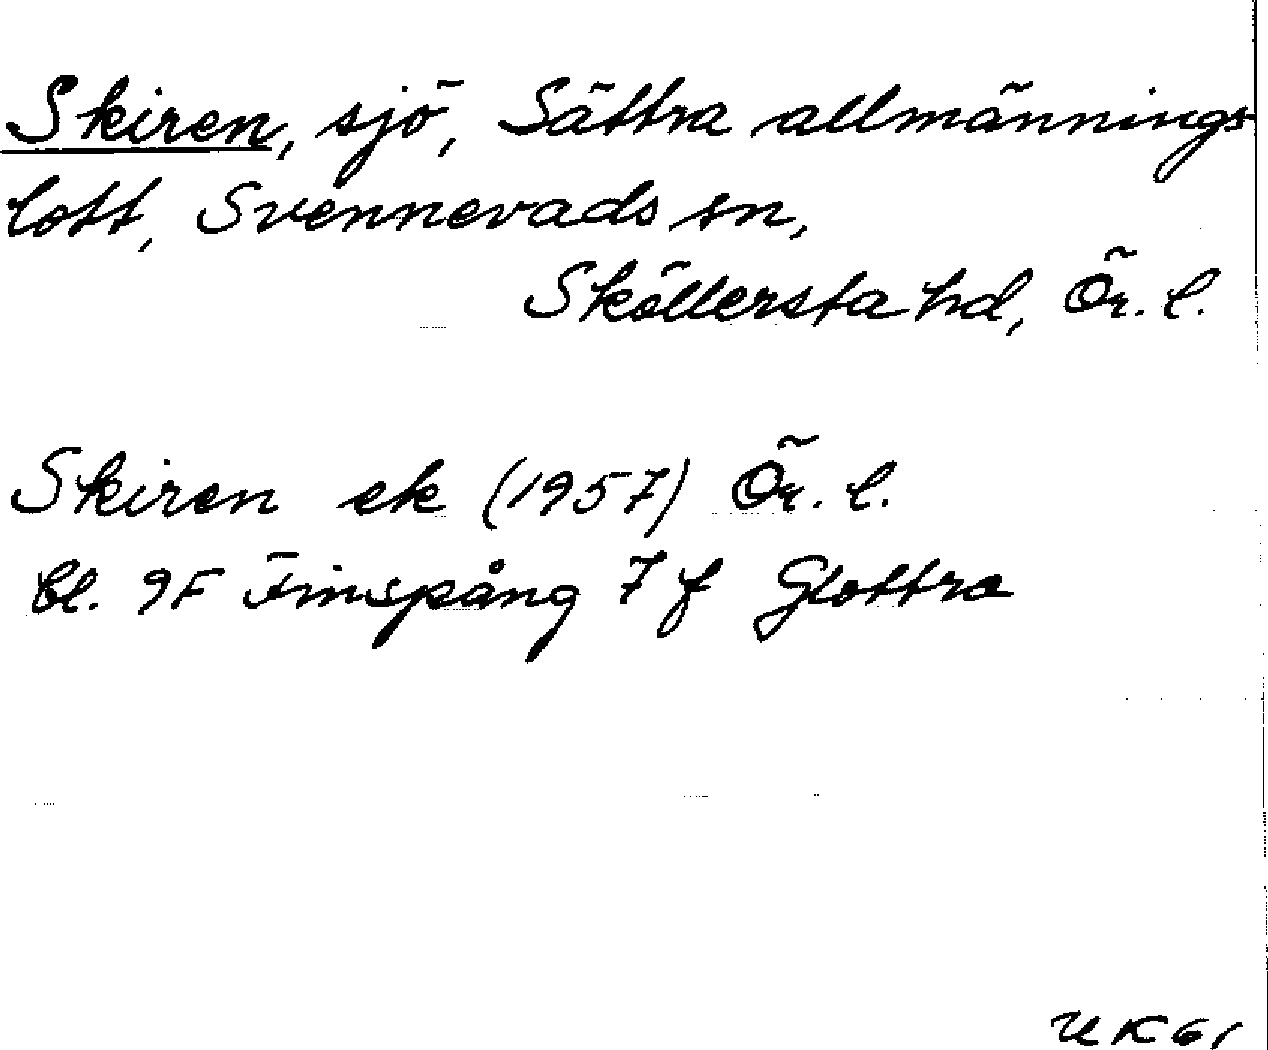 Skiren, sjö, Sättra allmännings
lott, Svennevads sn,
Sköllersta hd, Ör. l.
Skiren ek (1957) Ör. l.
bl. 9F Finspång 7 f Glottra
UK61